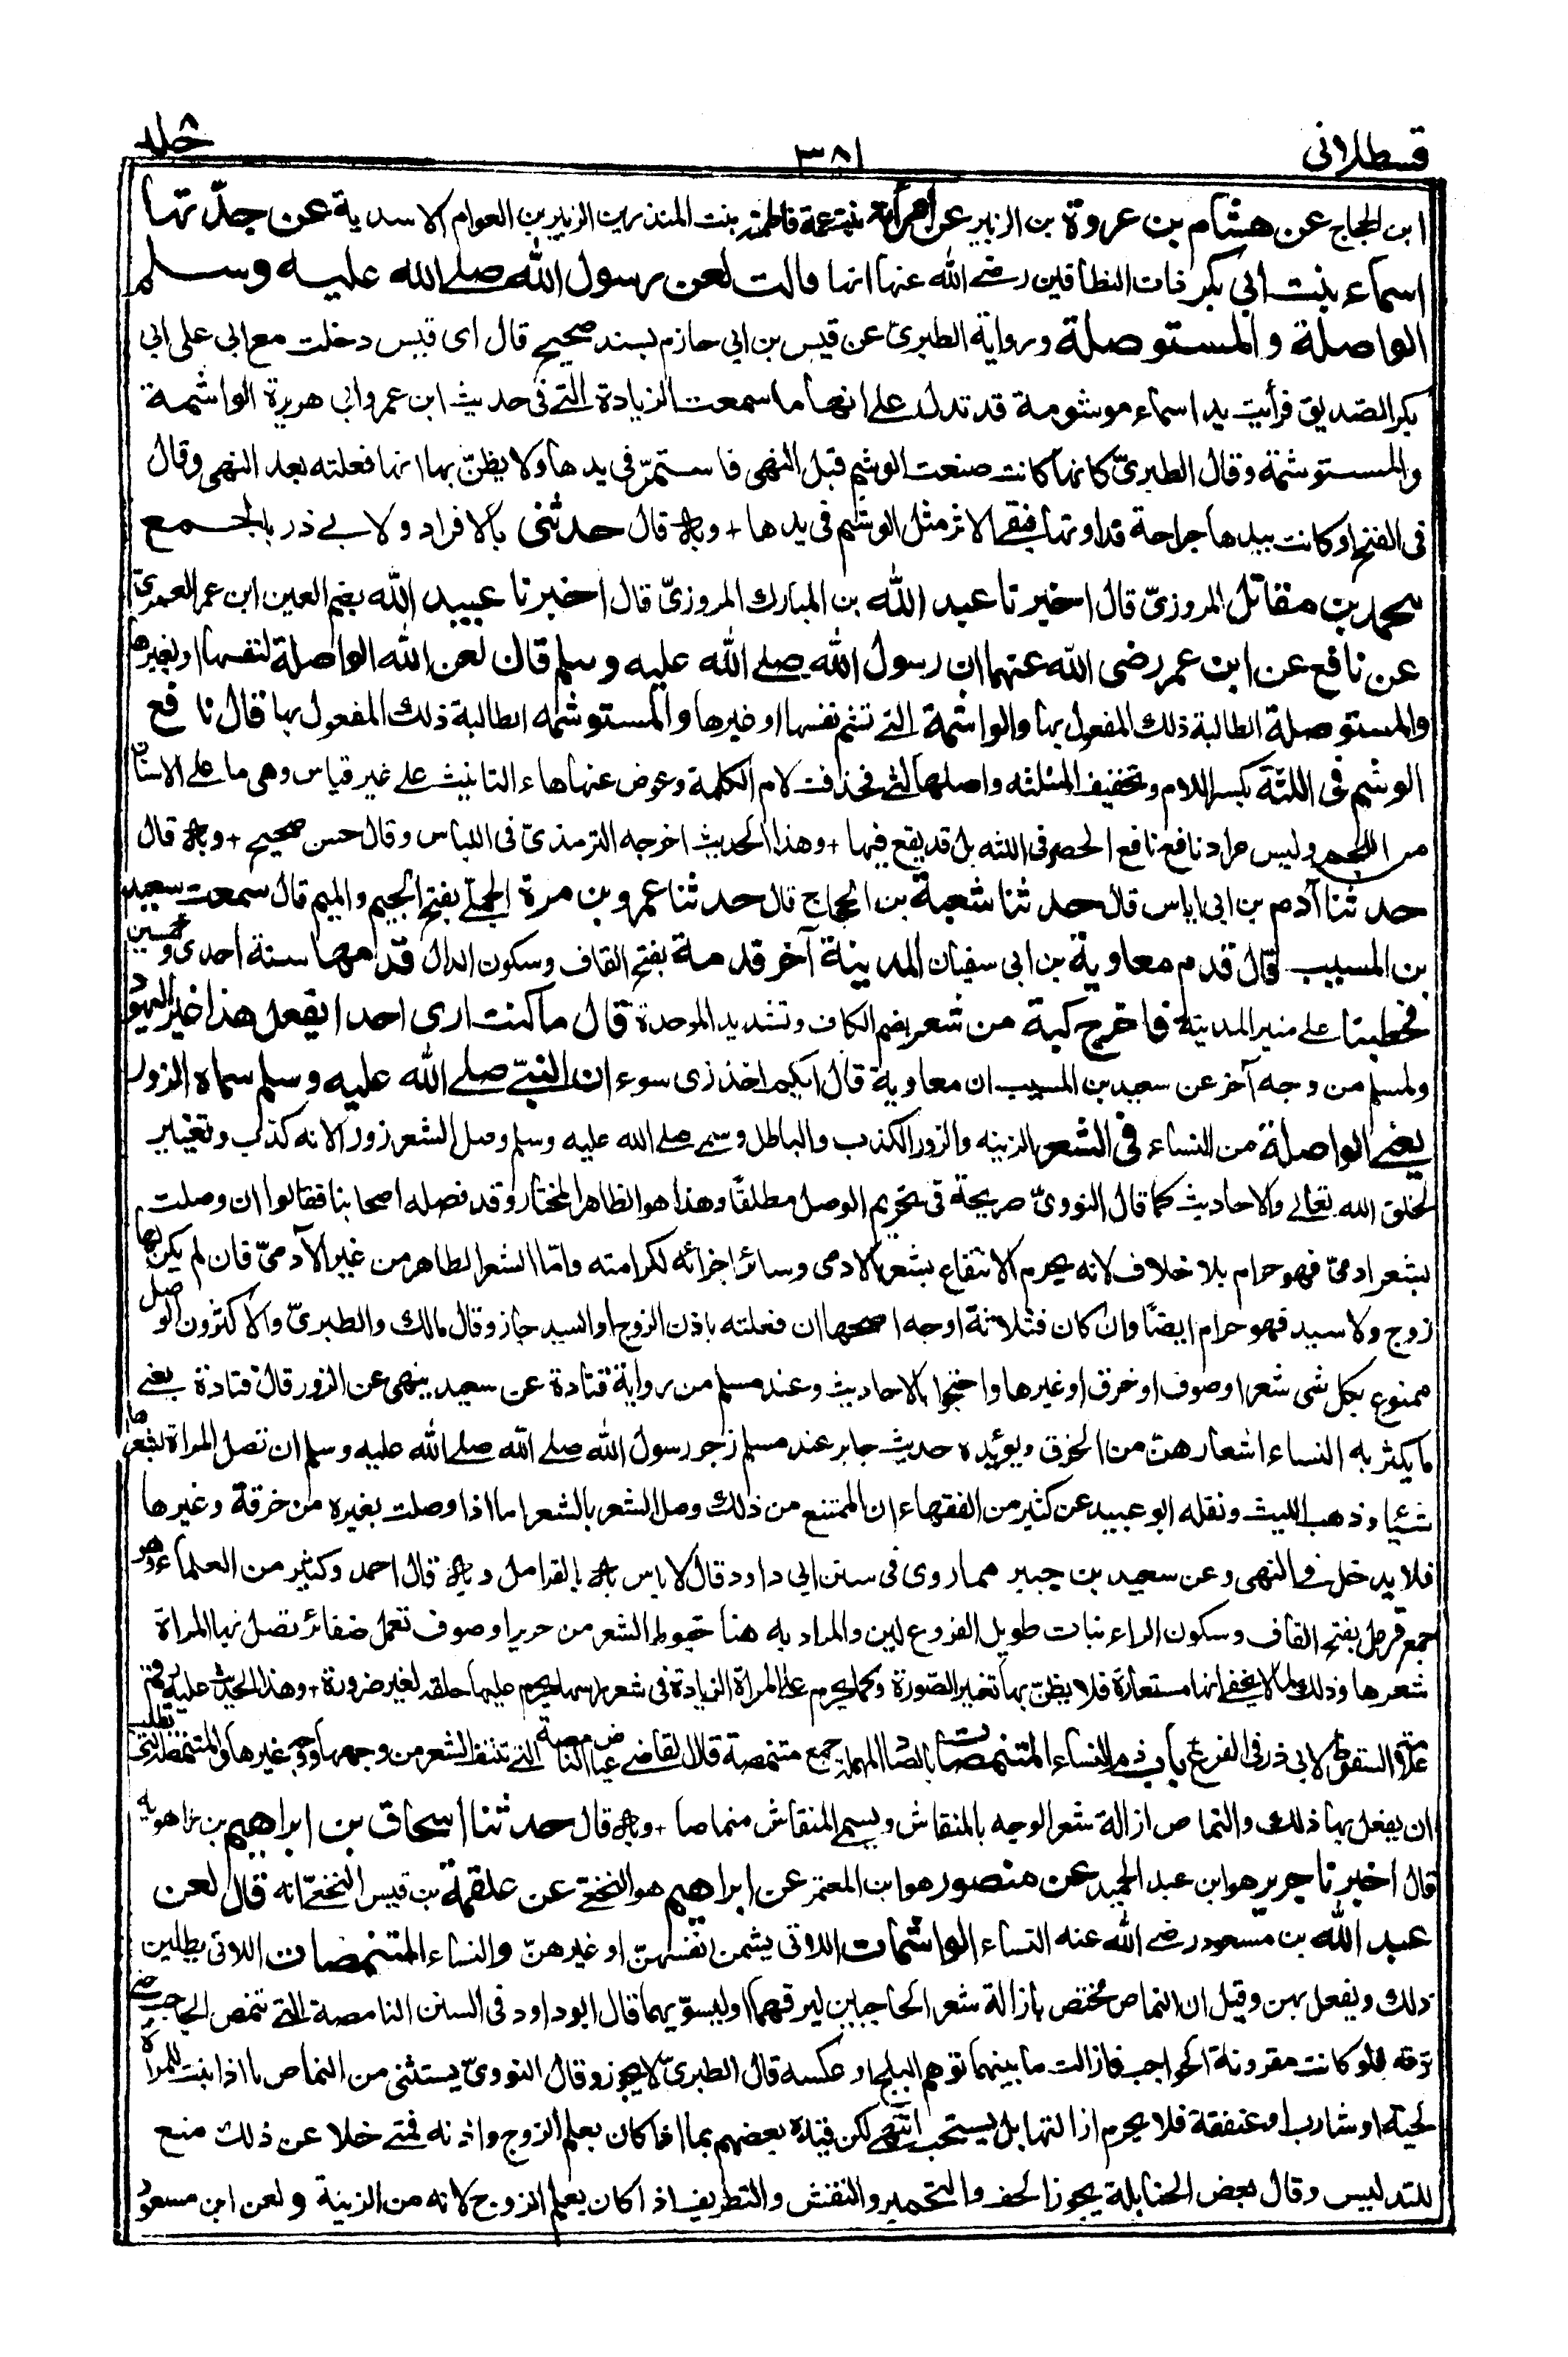 قسطلانى
٣٨١
جلد ٨
ابن الحجاج عن هشام بن عروة بن الزبير عن امرأته بنت عمه فاطمة بنت المنذر بن الزبير بن العوام الاسدية عن جدّتها
اسماء بنت ابي بكر ذات النطاقين رضى الله عنها انها قالت لعن رسول الله صلى الله عليه وسلم
الواصلة والمستوصلة ورواية الطبرىّ عن قيس بن ابي حازم بسند صحيح قال اى قيس دخلت مع ابي على ابي
بكر الصّديق فرأيت يد اسماء موشومة قد تدل على انها ما سمعت الزيادة التى فى حديث ابن عمر وابي هريرة الواشمة
والمستوشمة وقال الطبرىّ كانها كانت صنعت الوشم قبل النهى فاستمرّ فى يدها ولا يظنّ بها انها فعلته بعد النهى وقال
فى الفتح او كانت بيدها جراحة فداوتها فبقى الاثر مثل الوشم فى يدها + وبه قال حدثنى بالافراد ولابي ذر بالجمع
محمد بن مقاتل المروزىّ قال اخبرنا عبد الله بن المبارك المروزىّ قال اخبرنا عبيد الله بضم العين ابن عمر العمرىّ
عن نافع عن ابن عمر رضى الله عنهما ان رسول الله صلى الله عليه وسلم قال لعن الله الواصلة لنفسها او لغيرها
والمستوصلة الطالبة ذلك المفعول بها والواشمة التى تشم نفسها او غيرها والمستوشمه الطالبة ذلك المفعول بها قال نافع
الوشم فى اللثة بكسر اللام وتخفيف المثلثه واصلها لثى فحذفت لام الكلمة وعوض عنها هاء التانيث على غير قياس وهى ما على الاسنان
من اللحم وليس مراد نافع نافع الحصر فى اللثه بل قد يقع فيها + وهذا الحديث اخرجه الترمذىّ فى اللباس وقال حسن صحيح + وبه قال
حدثنا آدم بن ابى اياس قال حدثنا شعبة بن الحجاج قال حدثنا عمرو بن مرة الجملى بفتح الجيم والميم قال سمعت سعيد
بن المسيب قال قدم معاوية بن ابى سفيان المدينة آخر قدمة بفتح القاف وسكون الدال قدمها سنة احدى وخمسين
فخطبنا على منبر المدينة فاخرج كبة من شعر بضم الكاف وتشديد الموحدة قال ما كنت ارى احدا يفعل هذا غير اليهود
ولمسلم من وجه آخر عن سعيد بن المسيب ان معاوية قال ايكم اخذ زى سوء ان النبىّ صلى الله عليه وسلم سماه الزور
يعنى الواصلة من النساء فى الشعر الزينه والزور الكذب والباطل وسمى صلى الله عليه وسلم وصل الشعر زور الانه كذب وتغيير
لخلق الله تعالى والاحاديث كما قال النووىّ صريحة فى تحريم الوصل مطلقًا وهذا هو الظاهر المختار وقد فصله اصحابنا فقالوا ان وصلت
بشعر ادمىّ فهو حرام بلا خلاف لانه يحرم الانتفاع بشعر الادمى وسائر اجزائه لكرامته وامّا الشعر الطاهر من غير الآدمىّ فان لم يكن لها
زوج ولا سيد فهو حرام ايضًا وان كان فثلاثة اوجه اصحها ان فعلته باذن الزوج او السيد جاز وقال مالك والطبرىّ والاكثرون الوصل
ممنوع بكل شى شعر او صوف او خرق او غيرها واحتجوا بالاحاديث وعند مسلم من رواية قتادة عن سعيد ينهى عن الزور قال قتادة يعنى
ما يكثر به النساء اشعارهنّ من الخرق ويؤيده حديث جابر عند مسلم زجر رسول الله صلى الله صلى الله عليه وسلم ان تصل المراة بشعرها
شئيا وذهب الليث ونقله ابو عبيد عن كثير من الفقهاء ان الممتنع من ذلك وصل الشعر بالشعر اما اذا وصلت بغيره من خرقة وغيرها
فلا يدخل فى النهى وعن سعيد بن جبير مما روى فى سنن ابي داود قال لا باس به بالقرامل وبه قال احمد وكثير من العلماء وهو
جمع قرمل بفتح القاف وسكون الراء نبات طويل الفروع لين والمراد به هنا خيوط الشعر من حرير او صوف تعمل ضفائر تصل بها المراة
شعرها وذلك لما لا يخفى انها مستعارة فلا يظنّ بها تغير الصّورة وكما يحرم على المراة الزيادة فى شعر راسها يحرم عليها حلقه لغير ضرورة + وهذا الحديث عليه رقم
علامة السقوط لابى ذر فى الفرع باب ذم النساء المتنمصات بالصاد المهملة جمع متنمصة قال القاضى عياض النامصة التى تنتف الشعر من وجهها او وجه غيرها والمتنمصة التى تطلب
ان يفعل بها ذلك والنماص ازالة شعر الوجه بالمنقاش ويسمى المنقاش منماصا + وبه قال حدثنا اسحاق بن ابراهيم بن راهويه
قال اخبرنا جرير هو ابن عبد الحميد عن منصور هو ابن المعتمر عن ابراهيم هو النخعى عن علقمة بن قيس النخعىّ انه قال لعن
عبد الله بن مسعود رضى الله عنه النساء الواشمات اللاتى يشمن انفسهنّ او غيرهنّ والنساء المتنمصات اللاتى يطلبن
ذلك ويفعل بهن وقيل ان النماص مختص بازالة شعر الحاجبين ليرقهما او ليسوّيهما قال ابو داود فى السنن النامصة التى تنمص الحاجب حتى
ترقه فلو كانت مقرونة الحواجب فازالت ما بينهما توهم البلج او عكسه قال الطبرىّ لا يجوز وقال النووىّ يستثنى من النماص ما اذا نبت للمراة
لحية او شارب او عنفقة فلا يحرم ازالتها بل يستحب انتهى لكن قيده بعضهم بما اذا كان بعلم الزوج واذنه فمتى خلا عن ذلك منع
للتدليس وقال بعض الحنابلة يجوز الحف والتحمير والنقش والتطريف اذا كان بعلم الزوج لانه من الزينة ولعن ابن مسعود